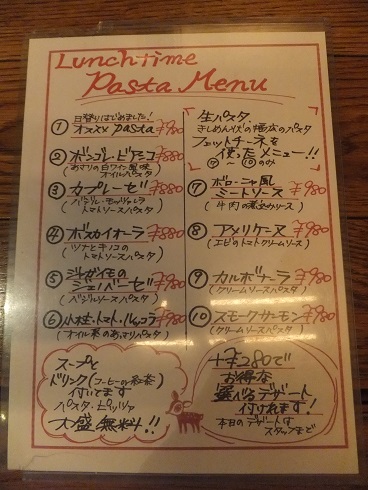 Lunchtime
Pasta Menu
日替りはじめました!
① オススメ pasta ¥980
② ボンゴレ・ビアンコ ¥880
(あさりの白ワイン風味
オイルパスタ)
③ カプレーゼ ¥880
(バジル・モッツァレラ
トマトソースパスタ)
④ ボスカイオーラ ¥880
(ツナとキノコの
トマトソースパスタ)
⑤ ジャガイモの
ジェノベーゼ ¥980
(バジルソースパスタ)
⑥ 小柱・トマト・ルッコラ ¥980
(オイル系のあっさりパスタ)
生パスタ
きしめん状の幅広のパスタ
フェットチーネを
使ったメニュー!!
⑦〜⑩のみ
⑦ ボローニャ風
ミートソース ¥980
(牛肉の煮込みソース)
⑧ アメリケーヌ ¥980
(エビのトマトクリームソース)
⑨ カルボナーラ ¥980
(クリームソースパスタ)
⑩ スモークサーモン ¥980
(クリームソースパスタ)
スープと
ドリンク(コーヒーor紅茶)
付いてます
パスタ・ピッツァ
大盛無料!!
+¥280で
お得な
選べるデザート
付けれます!
本日のデザートは
スタッフまで